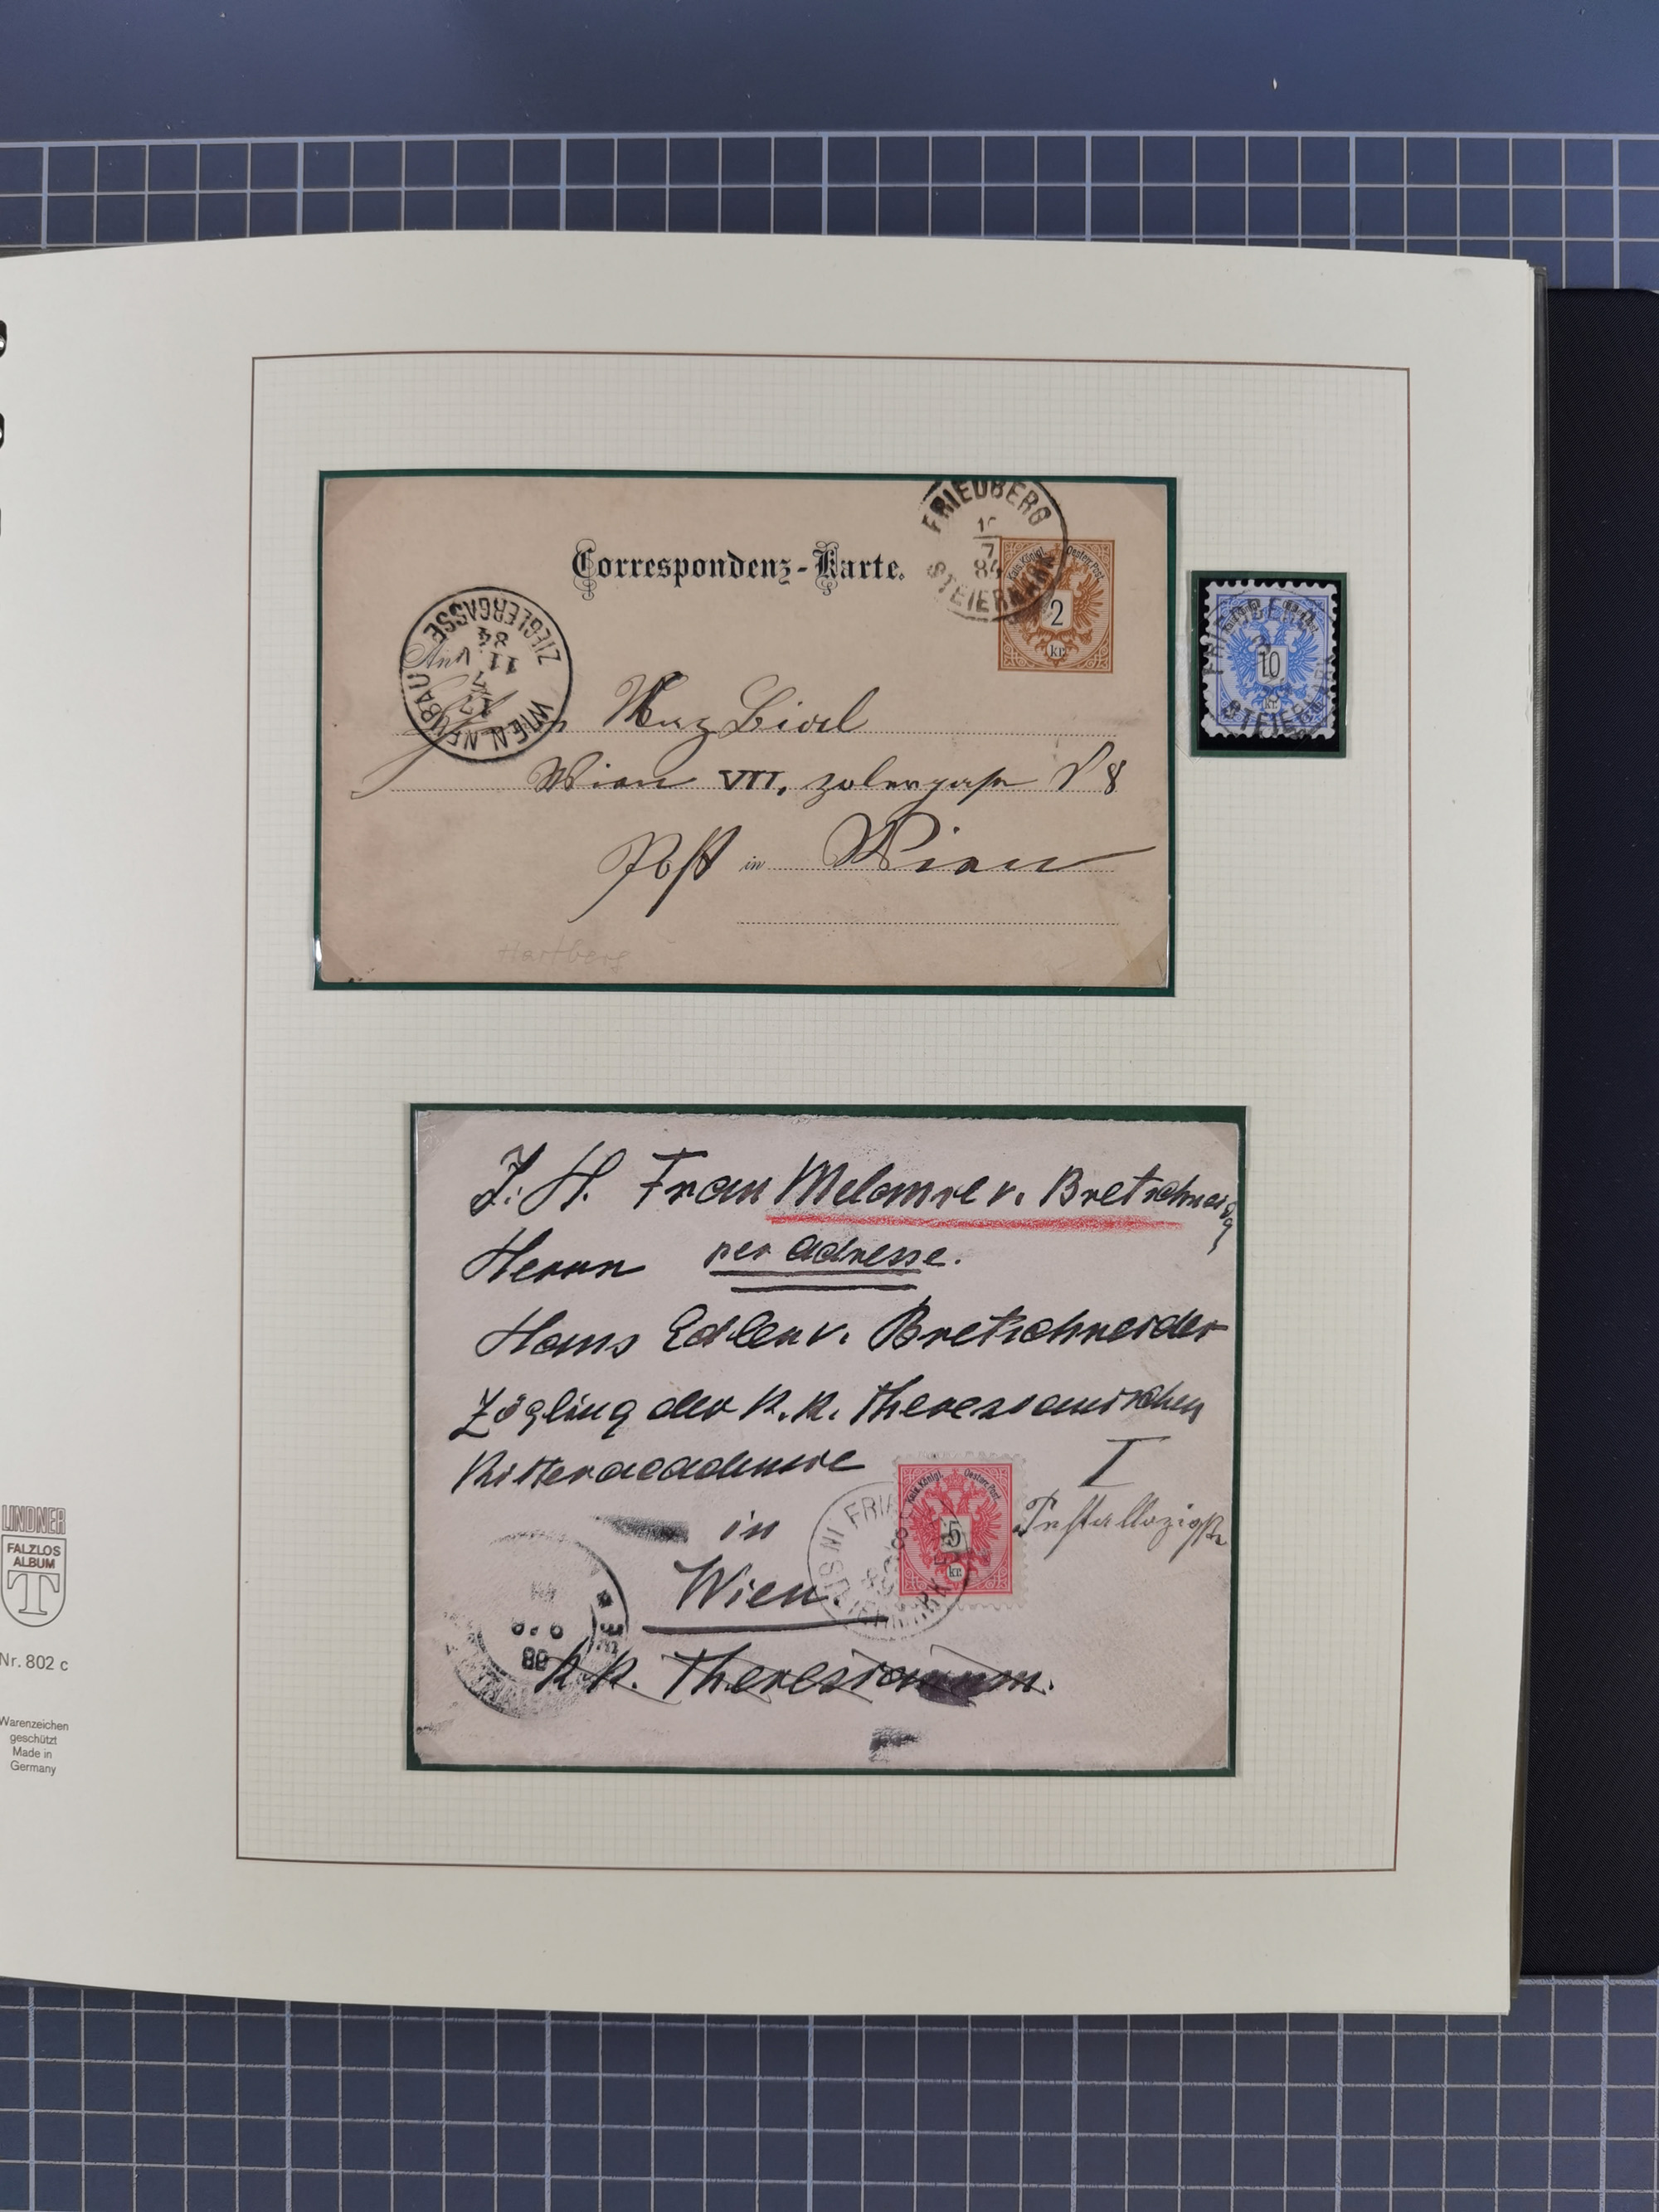 Correspondenz-Karte.
FRIEDBERG
7
84
STEIERMARK
Kais. Königl. Oesterr. Post.
2
kr.
WIEN NEUBAU
ZIEGLERGASSE
11
84
An
Wien VII,
8
Post in Wien
Hartberg
FRIEDBERG
10
kr.
STEIERMARK
J. H. Frau Melanie v. Bretschneider
Herrn per adresse.
Hans Edlen v. Bretschneider
Zögling der k. k. Theresianischen
Ritteracademie
I
in
Wien
k. k. Theresianum.
FRIE
STEIERMARK
Kais. Königl. Oesterr. Post.
5
kr.
88
LINDNER
FALZLOS
ALBUM
T
Nr. 802 c
Warenzeichen
geschützt
Made in
Germany